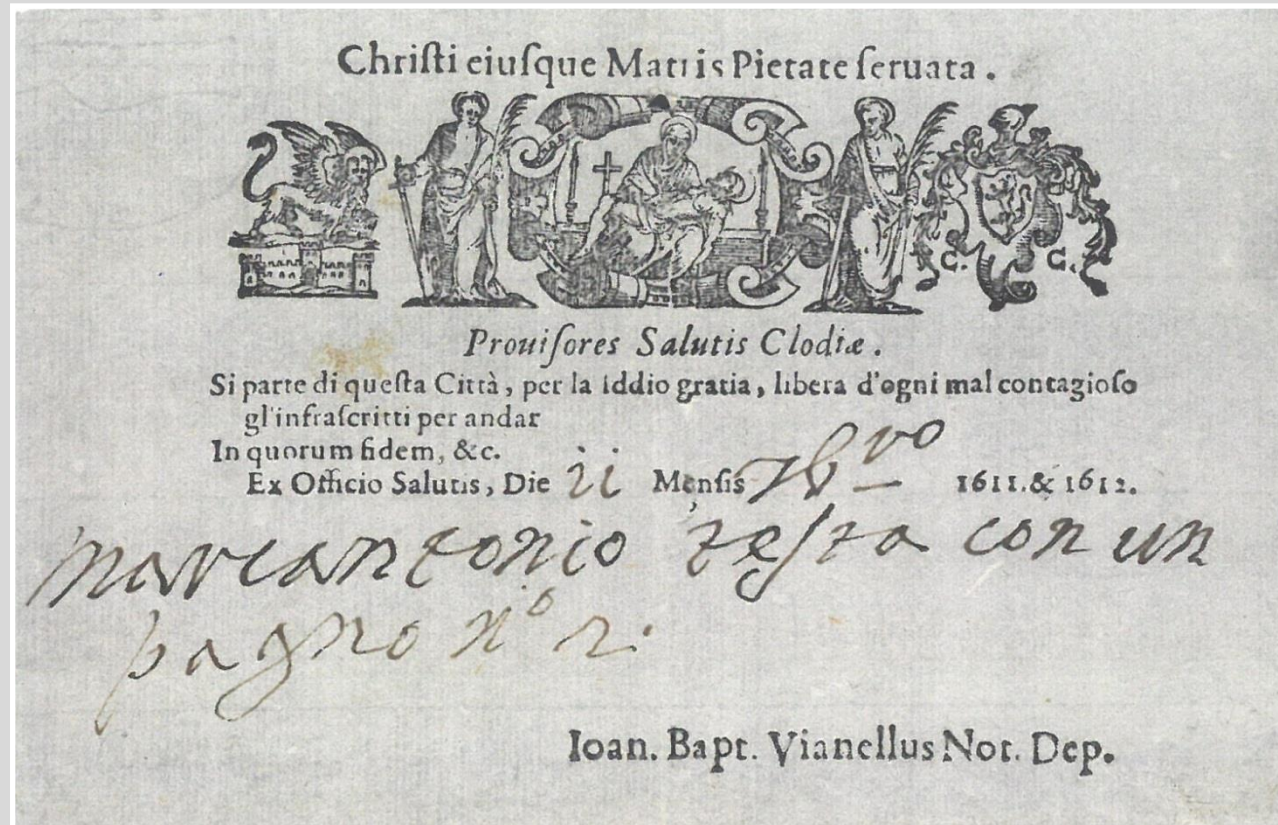 Christi eiusque Matris Pietate seruata.
C. C.
Prouisores Salutis Clodiæ.
Si parte di questa Città, per la Iddio gratia, libera d'ogni mal contagioso
gl'infrascritti per andar
In quorum fidem, &c.
Ex Officio Salutis, Die 11 Mensis 7bro 1611. & 1612.
marcantonio testa con un
pagno n° 2.
Ioan. Bapt. Vianellus Not. Dep.